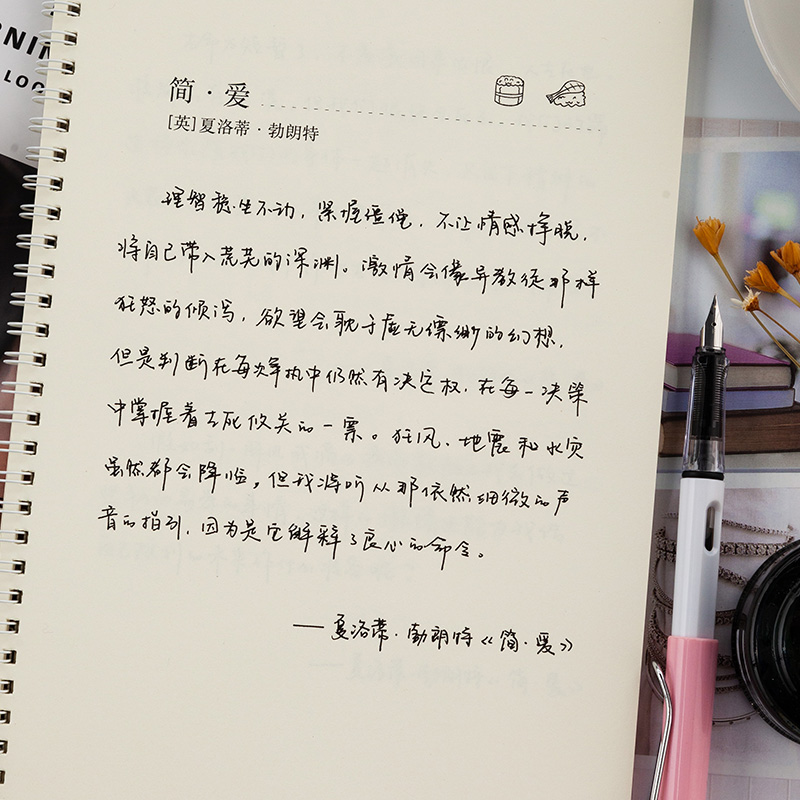 简·爱
[英]夏洛蒂·勃朗特
理智稳坐不动，紧握缰绳，不让情感挣脱，
将自己带入荒芜的深渊。激情会像异教徒那样
狂怒的倾泻，欲望会耽于虚无缥缈的幻想，
但是判断在每次争执中仍然有决定权，在每一决策
中掌握着生死攸关的一票。狂风、地震和水灾
虽然都会降临，但我将听从那依然细微的声
音的指引，因为是它解释了良心的命令。
——夏洛蒂·勃朗特《简·爱》